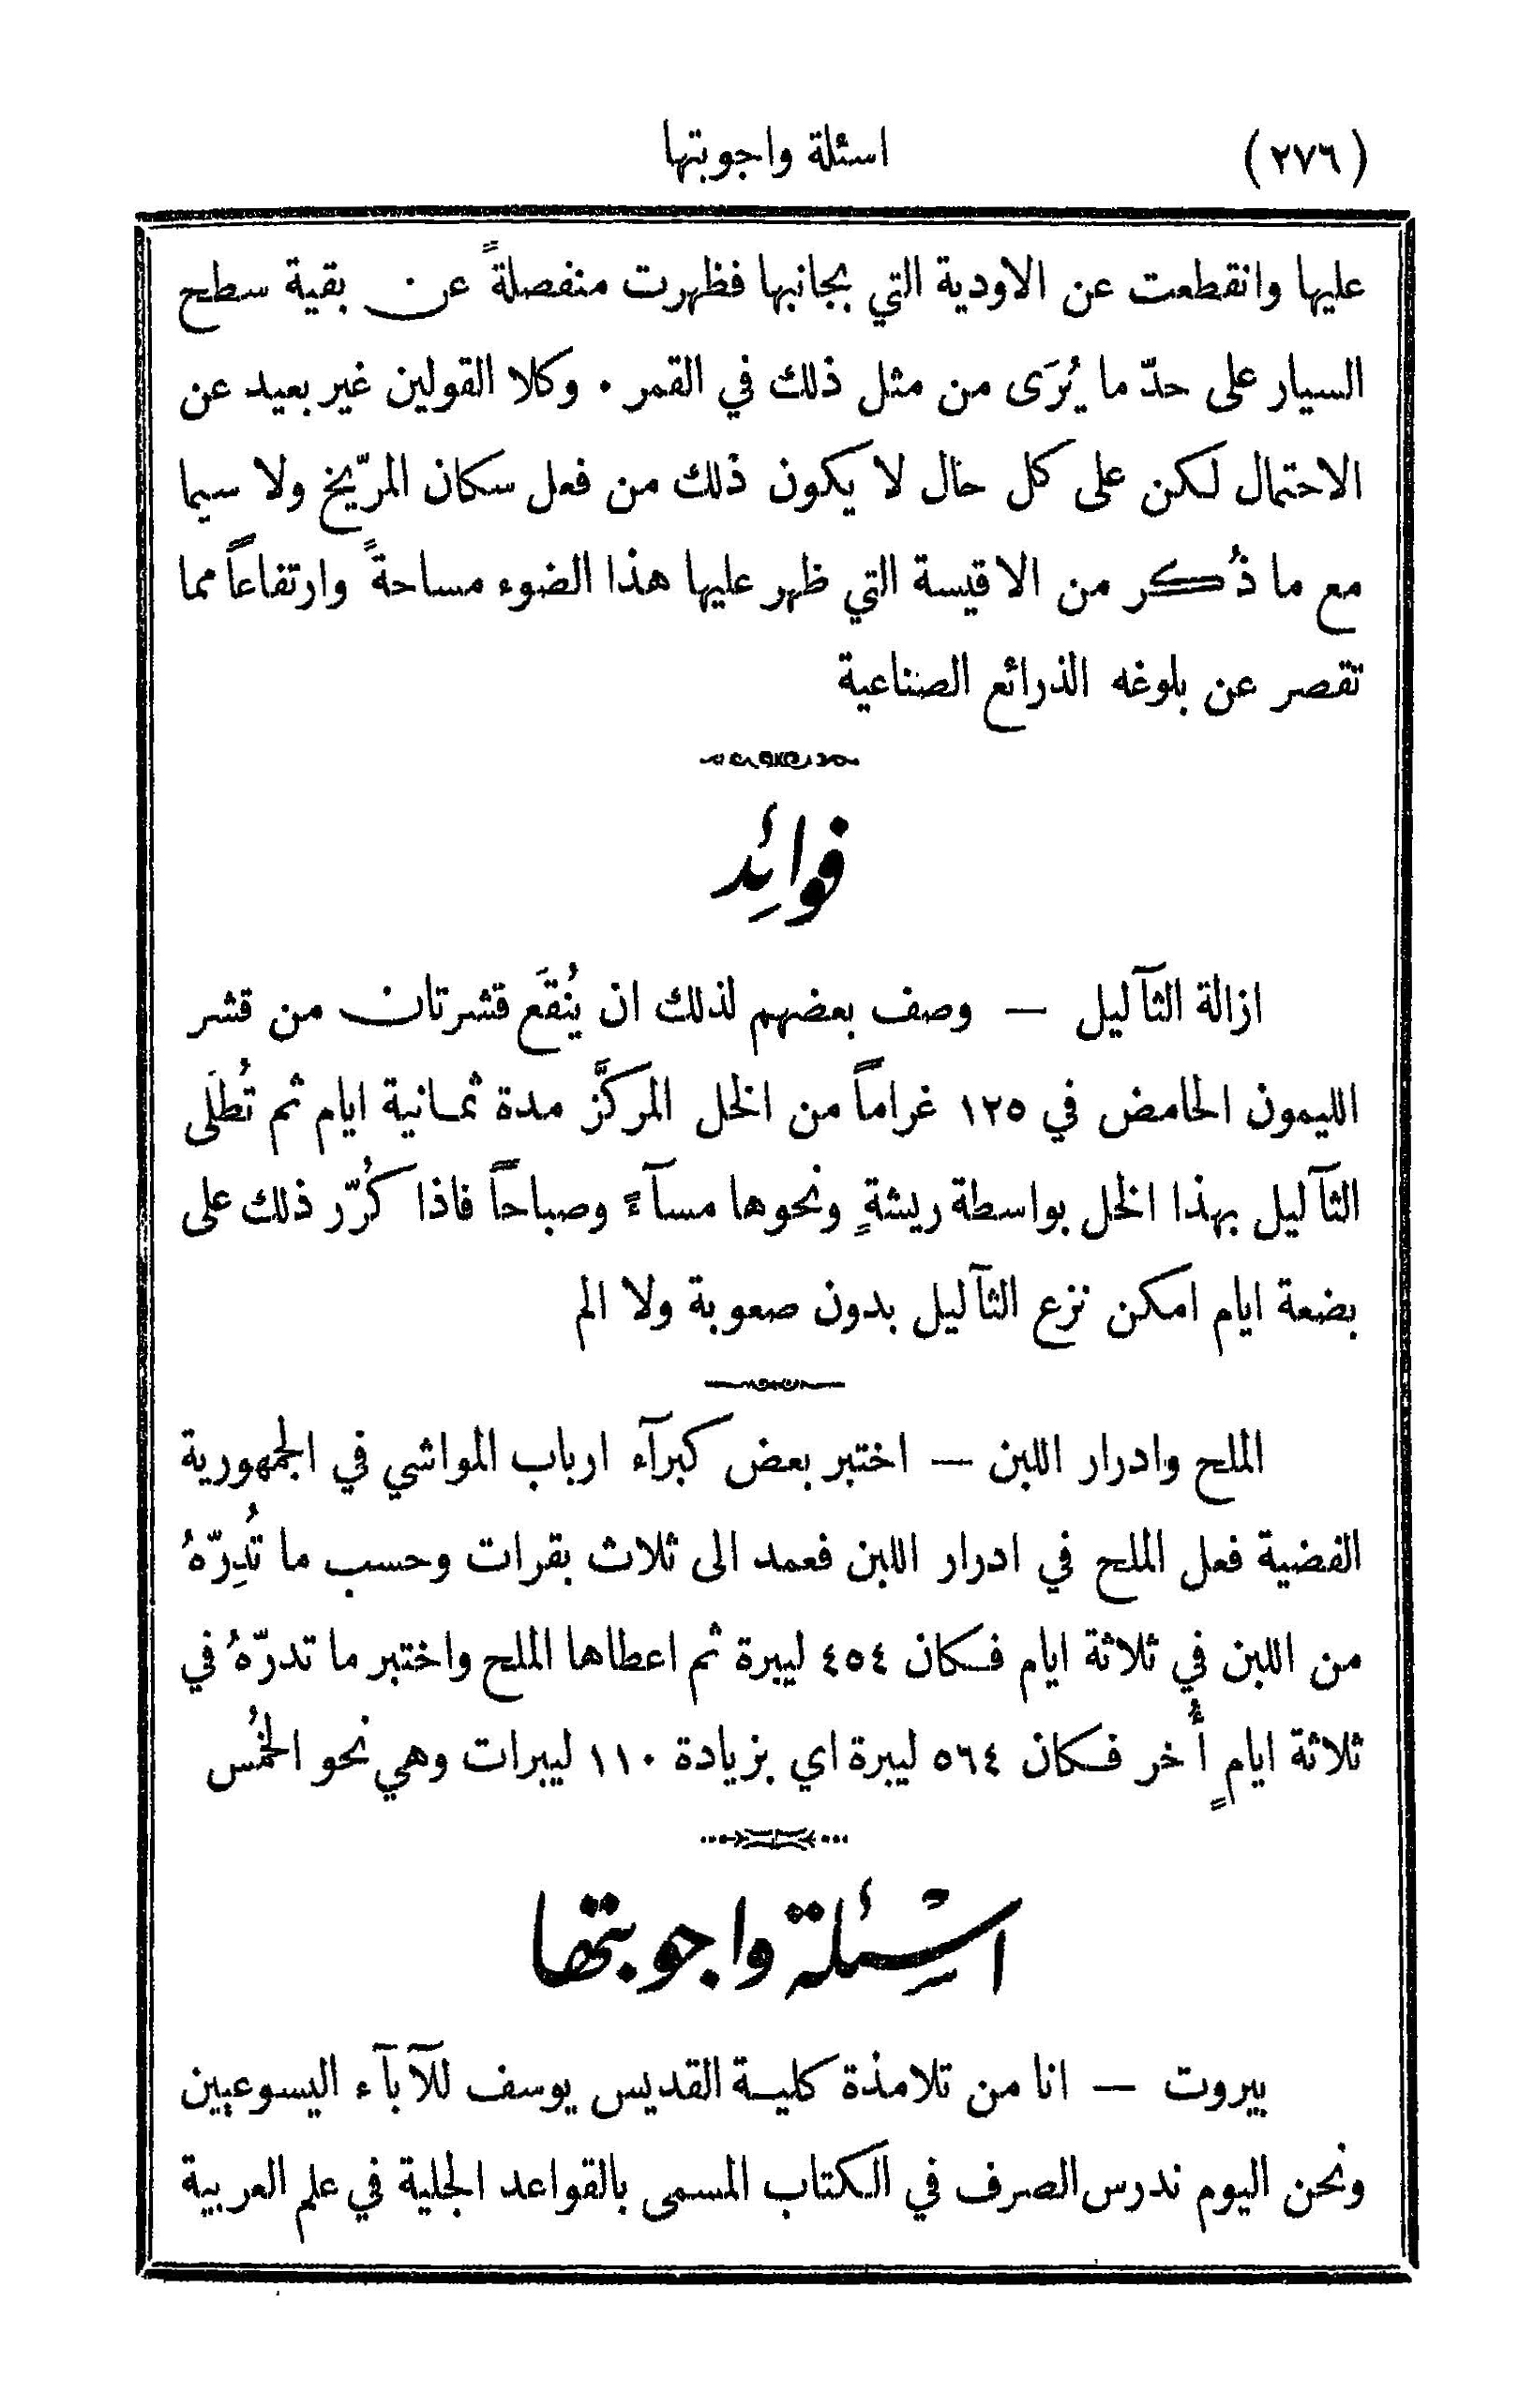 (٢٧٦) اسئلة واجوبتها
عليها وانقطعت عن الاودية التي بجانبها فظهرت منفصلةً عن بقية سطح
السيار على حدّ ما يُرَى من مثل ذلك في القمر . وكلا القولين غير بعيد عن
الاحتمال لكن على كل حال لا يكون ذلك من فعل سكان المرّيخ ولا سيما
مع ما ذُكر من الاقيسة التي ظهر عليها هذا الضوء مساحةً وارتفاعاً مما
تقصر عن بلوغه الذرائع الصناعية
فوائِد
ازالة الثآليل — وصف بعضهم لذلك ان يُنقَع قشرتان من قشر
الليمون الحامض في ١٢٥ غراماً من الخل المركَّز مدة ثمانية ايام ثم تُطلَى
الثآليل بهذا الخل بواسطة ريشةٍ ونحوها مسآءً وصباحاً فاذا كُرّر ذلك على
بضعة ايام امكن نزع الثآليل بدون صعوبة ولا الم
الملح وادرار اللبن — اختبر بعض كبرآء ارباب المواشي في الجمهورية
الفضية فعل الملح في ادرار اللبن فعمد الى ثلاث بقرات وحسب ما تُدِرّهُ
من اللبن في ثلاثة ايام فكان ٤٥٤ ليبرة ثم اعطاها الملح واختبر ما تدرّهُ في
ثلاثة ايامٍ أُخر فكان ٥٦٤ ليبرة اي بزيادة ١١٠ ليبرات وهي نحو الخمُس
اسْئِلة واجوبتها
بيروت — انا من تلامذة كلية القديس يوسف للآبآء اليسوعيين
ونحن اليوم ندرس الصرف في الكتاب المسمى بالقواعد الجلية في علم العربية